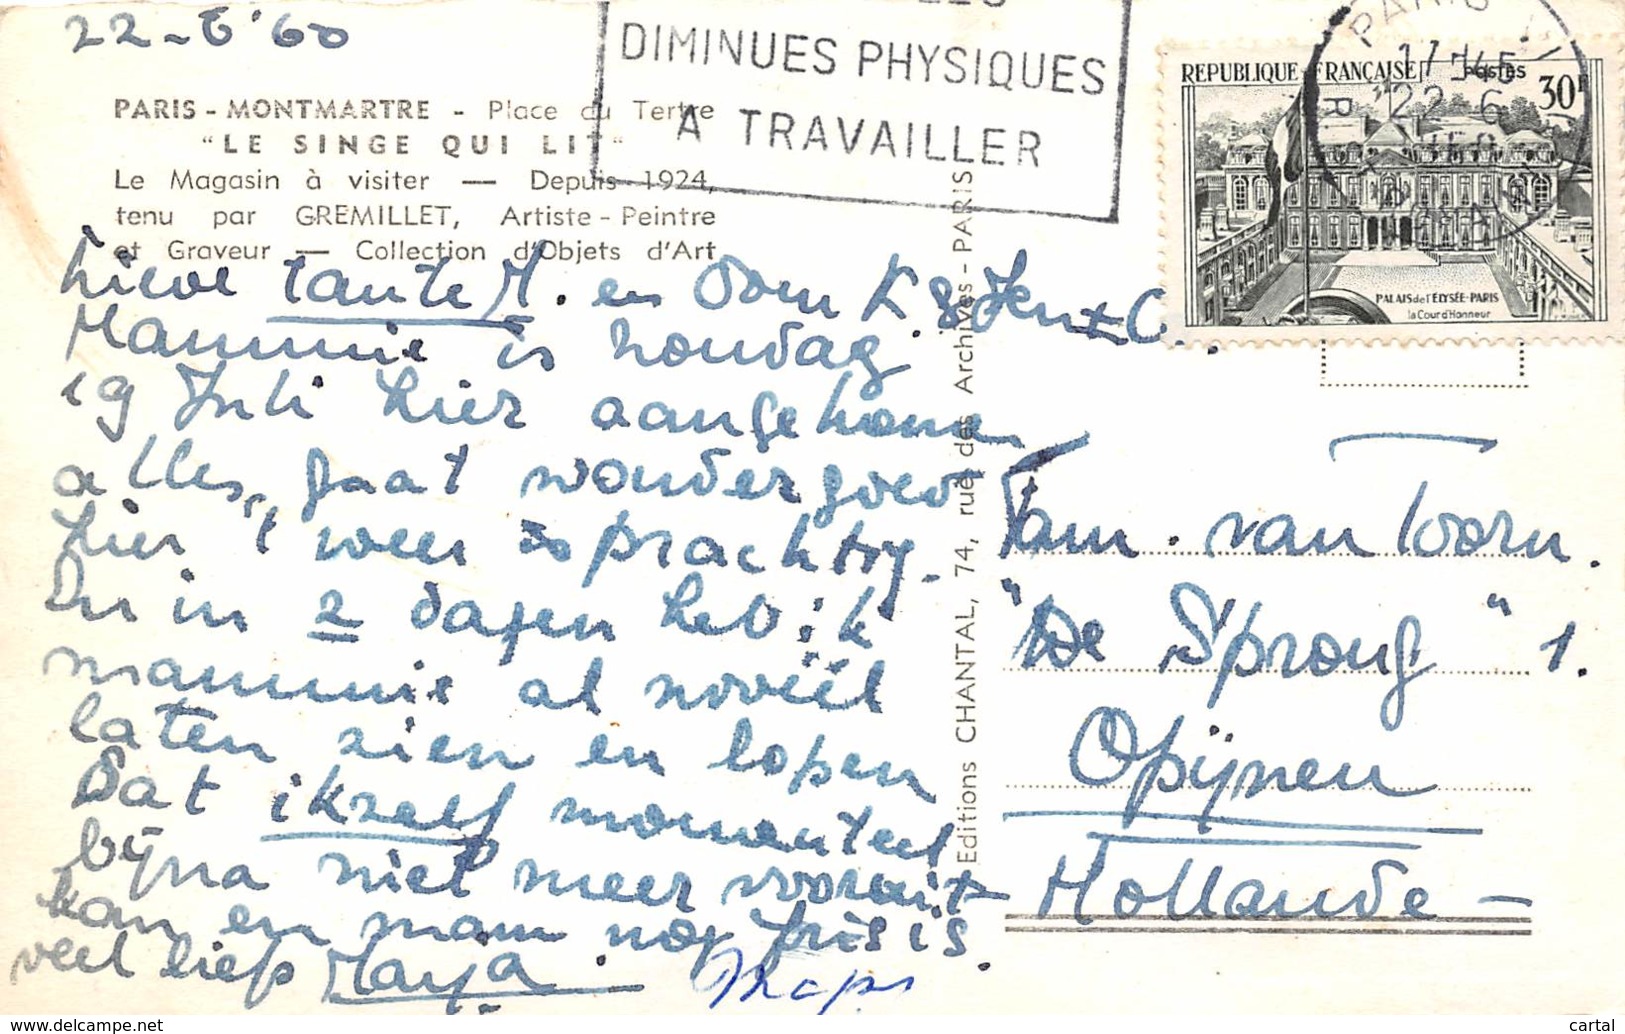 22-6'60
DIMINUES PHYSIQUES
A TRAVAILLER
PARIS
17 H45
22 - 6
REPUBLIQUE FRANÇAISE POSTES 30F
PALAIS de l'ÉLYSÉE-PARIS
la Cour d'Honneur
PARIS - MONTMARTRE - Place du Tertre
"LE SINGE QUI LIT"
Le Magasin à visiter — Depuis 1924,
tenu par GREMILLET, Artiste - Peintre
et Graveur — Collection d'Objets d'Art
Lieve tante M. en Oom K &
Mammie is zondag
19 Juli hier aangekomen
alles gaat wondergoed
hier 't weer zo prachtig.
En in 2 dagen heb ik
mammie al zovéél
laten zien en lopen
dat ikzelf momenteel
bijna niet meer vooruit
kan en mam nog fris is.
veel liefs Maya.
Editions CHANTAL, 74, rue des Archives - PARIS
Fam. van Toorn.
"De Sprong" 1.
Opijnen
Hollande -
delcampe.net
cartal